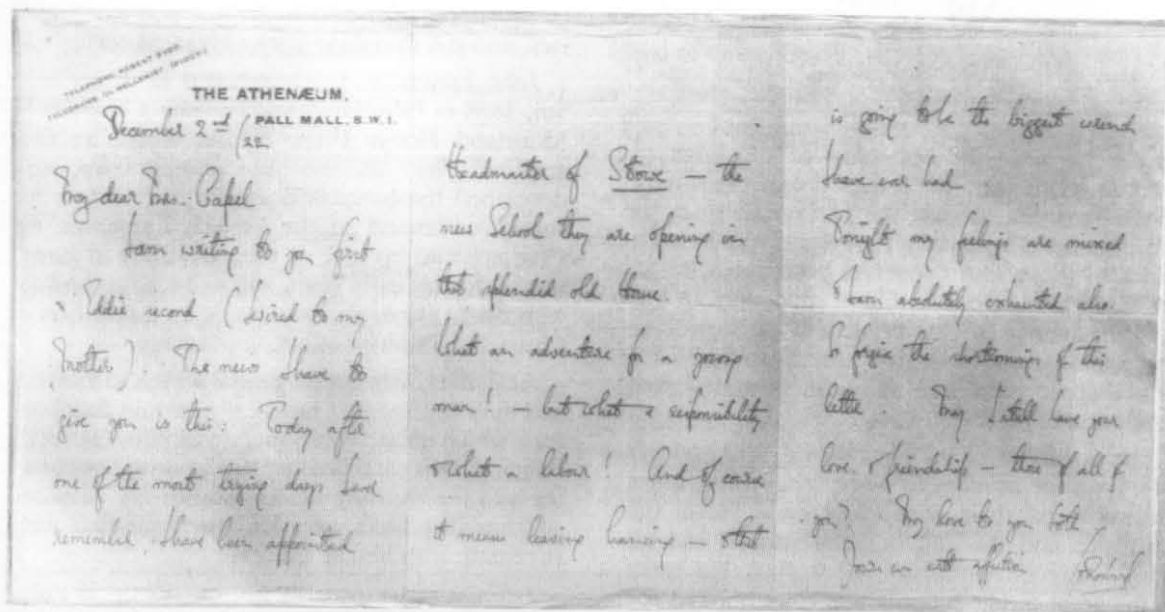 THE ATHENÆUM,
PALL MALL, S.W.1.
December 2nd/22
My dear Mrs. Capel
I am writing to you first
& Eddie second (I wired to my
Mother). The news I have to
give you is this: Today after
one of the most trying days I ever
remember, I have been appointed
Headmaster of Stowe — the
new School they are opening in
that splendid old House.
What an adventure for a young
man! — but what a responsibility
& what a labour! And of course
it means leaving Lancing — & that
is going to be the biggest wrench
I have ever had
Tonight my feelings are mixed
& I am absolutely exhausted also.
So forgive the shortcomings of this
letter. May I still have your
love & friendship — those of all of
you? My love to you both,
Yours ever with affection